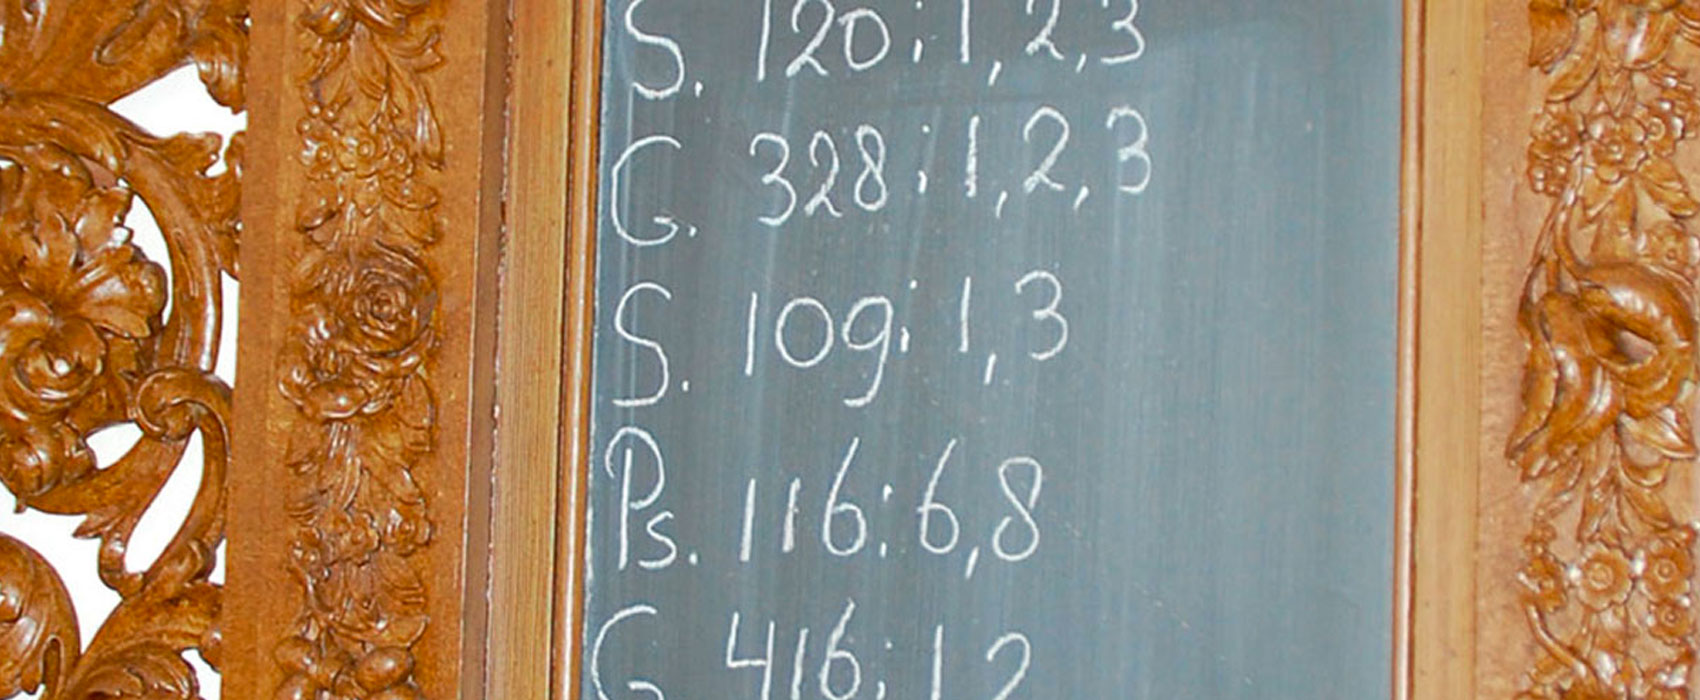 S. 120: 1, 2, 3
G. 328: 1, 2, 3
S. 109: 1, 3
Ps. 116: 6, 8
G. 416: 1 2